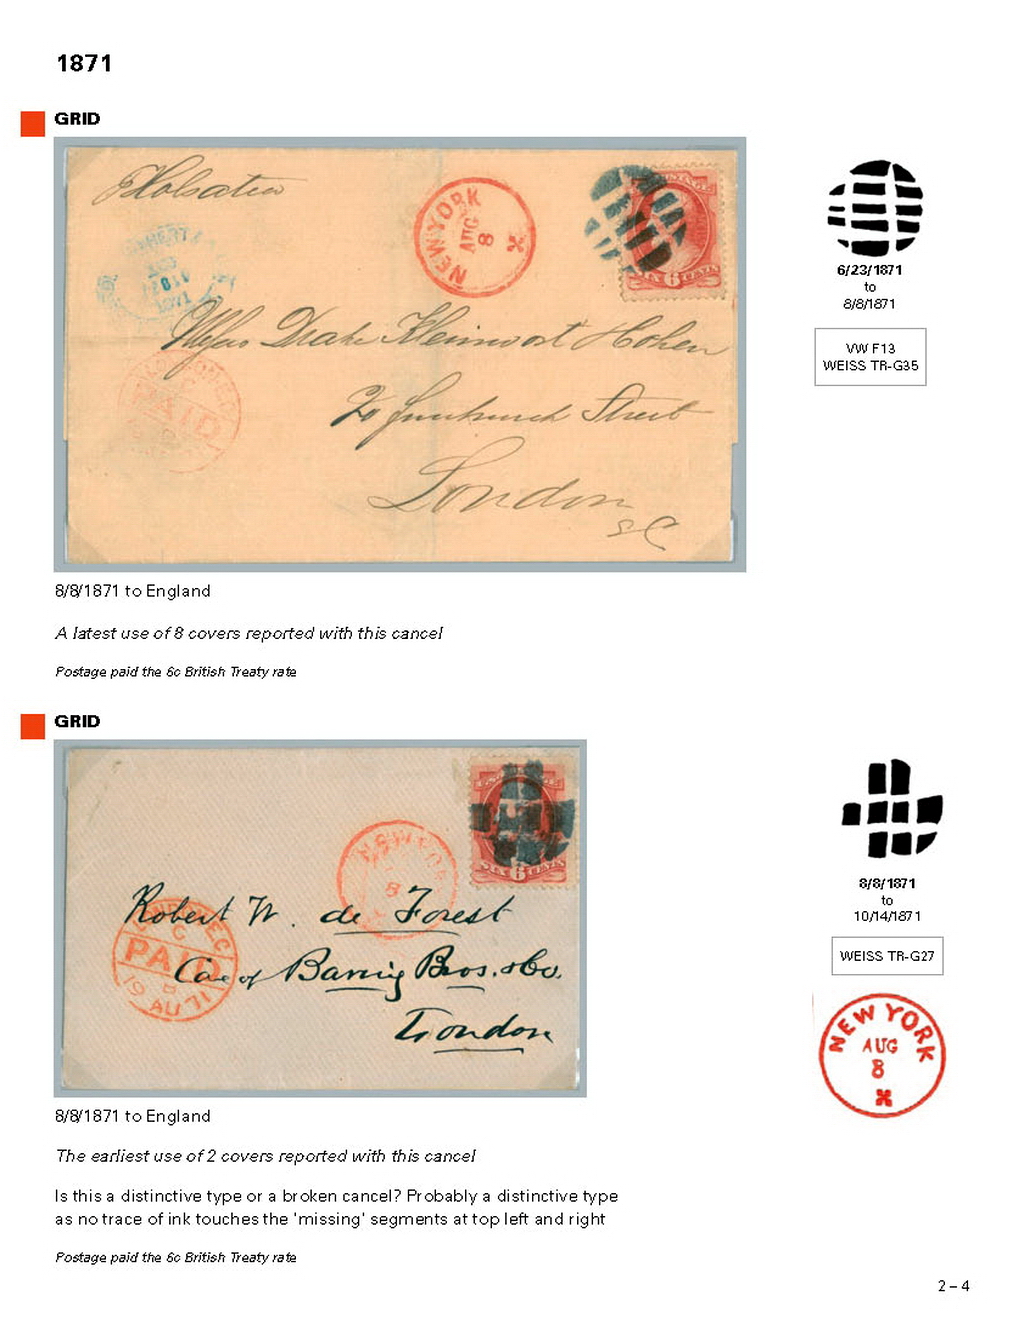 1871
GRID
Holsatia
NEW YORK
AUG
8
SIX 6 CENTS
1871
PAID
Messrs Drake Kleinwort & Cohen
20 Fenchurch Street
London
EC
6/23/1871
to
8/8/1871
VW F13
WEISS TR-G35
8/8/1871 to England
A latest use of 8 covers reported with this cancel
Postage paid the 6c British Treaty rate
GRID
NEW YORK
8
SIX 6 CENTS
Robert W. de Forest
Care of Baring Bros. & Co.
London
LONDON EC
C
PAID
19 AU 71
8/8/1871
to
10/14/1871
WEISS TR-G27
NEW YORK
AUG
8
8/8/1871 to England
The earliest use of 2 covers reported with this cancel
Is this a distinctive type or a broken cancel? Probably a distinctive type
as no trace of ink touches the 'missing' segments at top left and right
Postage paid the 6c British Treaty rate
2 – 4